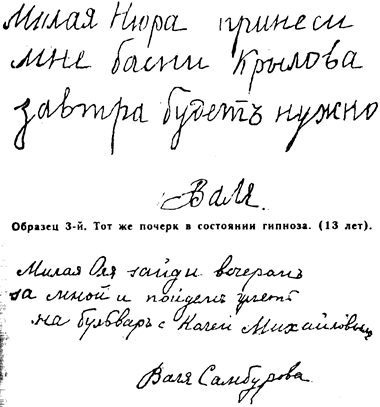 Милая Нюра принеси
мне басни Крылова
завтра будетъ нужно
Валя.
Образец 3-й. Тот же почерк в состоянии гипноза. (13 лет).
Милая Оля зайди вечеромъ
за мной и пойдемъ
на бульваръ с Михайловны
Валя Самбурова